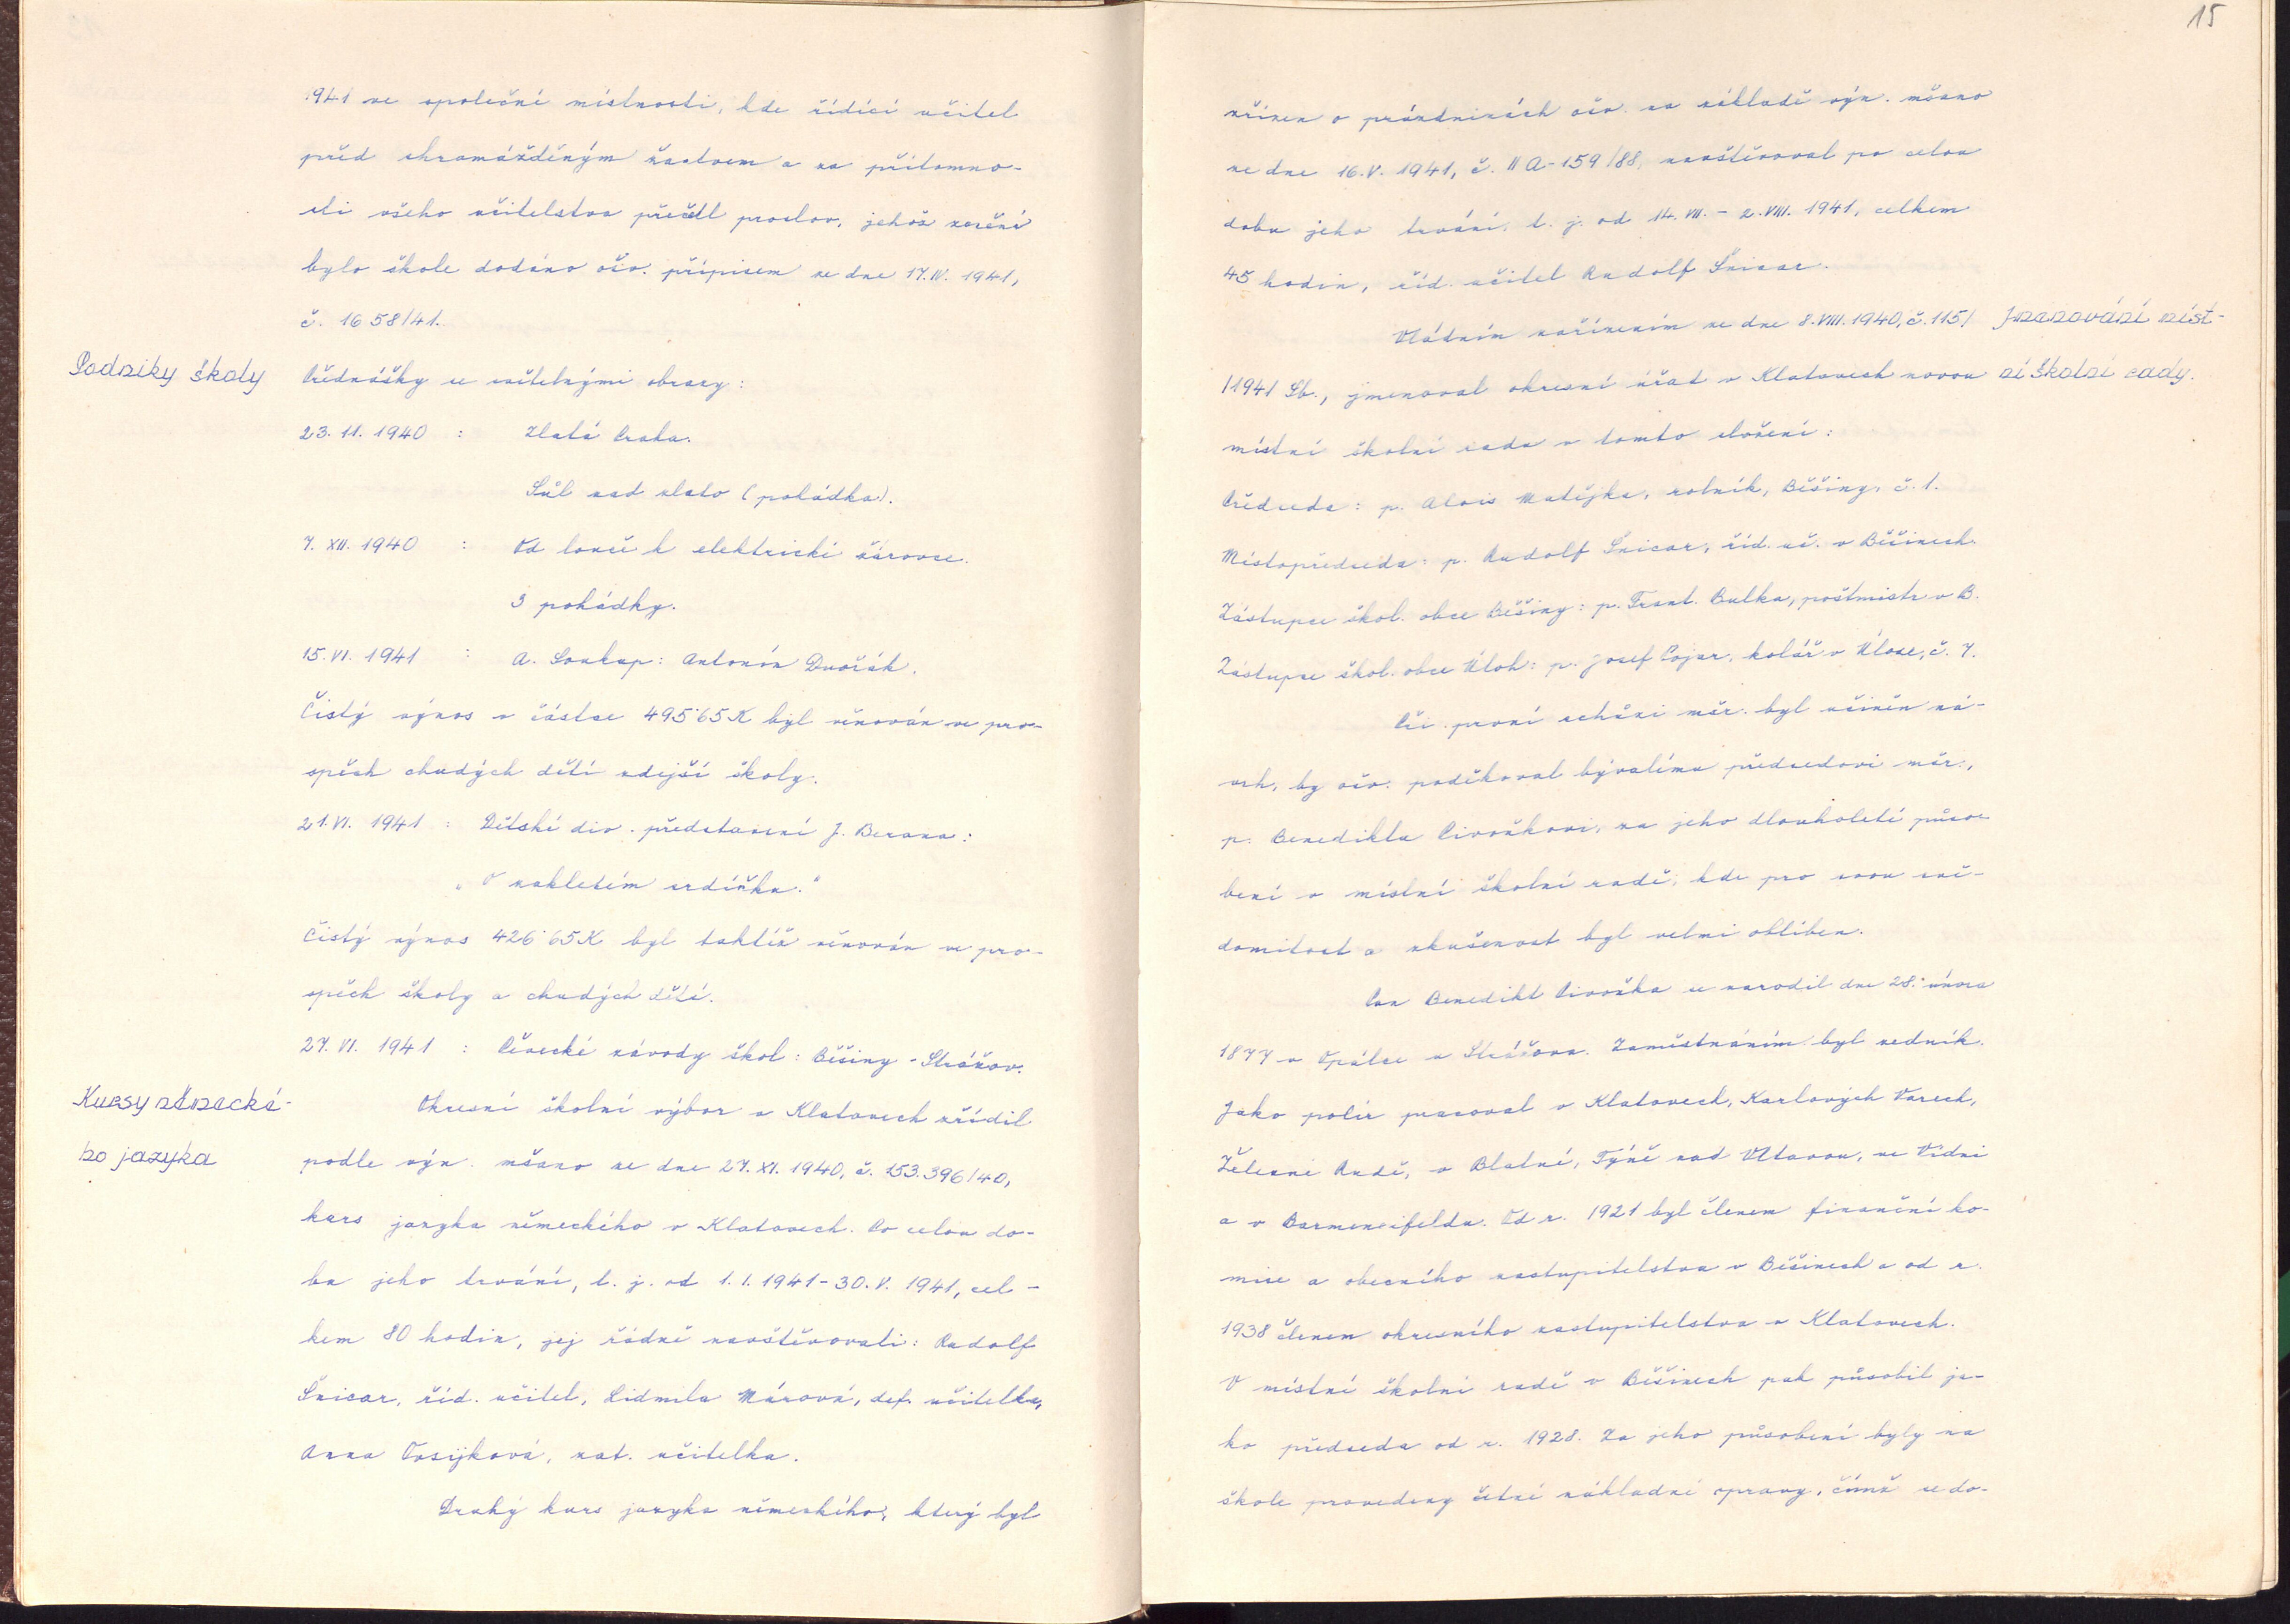 1941 ve společné místnosti, kde řídící učitel
před shromážděným žactvem a za přítomno-
sti všeho učitelstva přečetl proslov, jehož znění
bylo škole dodáno ošv. přípisem ze dne 17. IV. 1941,
č. 1658/41.
Podniky školy
Přednášky se světelnými obrazy:
23. 11. 1940 : Zlatá Praha.
Sůl nad zlato (pohádka).
7. XII. 1940 : Od louče k elektrické žárovce.
3 pohádky.
15. VI. 1941 : A. Soukup: Antonín Dvořák.
Čistý výnos v částce 495˙65 K byl věnován ve pro-
spěch chudých dětí zdejší školy.
21. VI. 1941 : Dětské div. představení J. Berana:
„O zakletém srdíčku."
Čistý výnos 426˙65 K byl taktéž věnován ve pro-
spěch školy a chudých dětí.
27. VI. 1941 : Pěvecké závody škol: Běšiny - Strážov.
Kursy německé-
ho jazyka
Okresní školní výbor v Klatovech zřídil
podle výn. mšano ze dne 27. XI. 1940, č. 153.396/40,
kurs jazyka německého v Klatovech. Po celou do-
bu jeho trvání, t. j. od 1. I. 1941 - 30. V. 1941, cel-
kem 80 hodin, jej řádně navštěvovali: Rudolf
Šnicar, říd. učitel, Lidmila Márová, def. učitelka,
Anna Vosijková, zat. učitelka.
Druhý kurs jazyka německého, který byl
15
zřízen o prázdninách ošv. na základě výn. mšano
ze dne 16. V. 1941, č. II A-159/88, navštěvoval po celou
dobu jeho trvání, t. j. od 14. VII. - 2. VIII. 1941, celkem
45 hodin, říd. učitel Rudolf Šnicar.
Vládním nařízením ze dne 8. VIII. 1940, č. 115/
Jmenování míst-
/1941 Sb., jmenoval okresní úřad v Klatovech novou
ní školní rady.
místní školní radu v tomto složení:
Předseda: p. Alois Matějka, rolník, Běšiny, č. 1.
Místopředseda: p. Rudolf Šnicar, říd. uč. v Běšinech.
Zástupce škol. obce Běšiny: p. Frant. Bulka, poštmistr v B.
Zástupce škol. obce Úloh: p. Josef Pojar, kolář v Úloze, č. 7.
Při první schůzi mšr. byl učiněn ná-
vrh, by ošv. poděkoval bývalému předsedovi mšr.,
p. Benediktu Pivoňkovi, za jeho dlouholeté působ
bení v místní školní radě, kde pro svou svě-
domitost a zkušenost byl velmi oblíben.
Pan Benedikt Pivoňka se narodil dne 28. února
1877 v Opálce u Strážova. Zaměstnáním byl zedník.
Jako polír pracoval v Klatovech, Karlových Varech,
Železné Rudě, v Blatné, Týně nad Vltavou, ve Vídni
a v Barmeneifeldu. Od r. 1921 byl členem finanční ko-
mise a obecního zastupitelstva v Běšinech a od r.
1938 členem okresního zastupitelstva v Klatovech.
V místní školní radě v Běšinech pak působil ja-
ko předseda od r. 1928. Za jeho působení byly na
škole provedeny četné nákladné opravy, čímž se do-